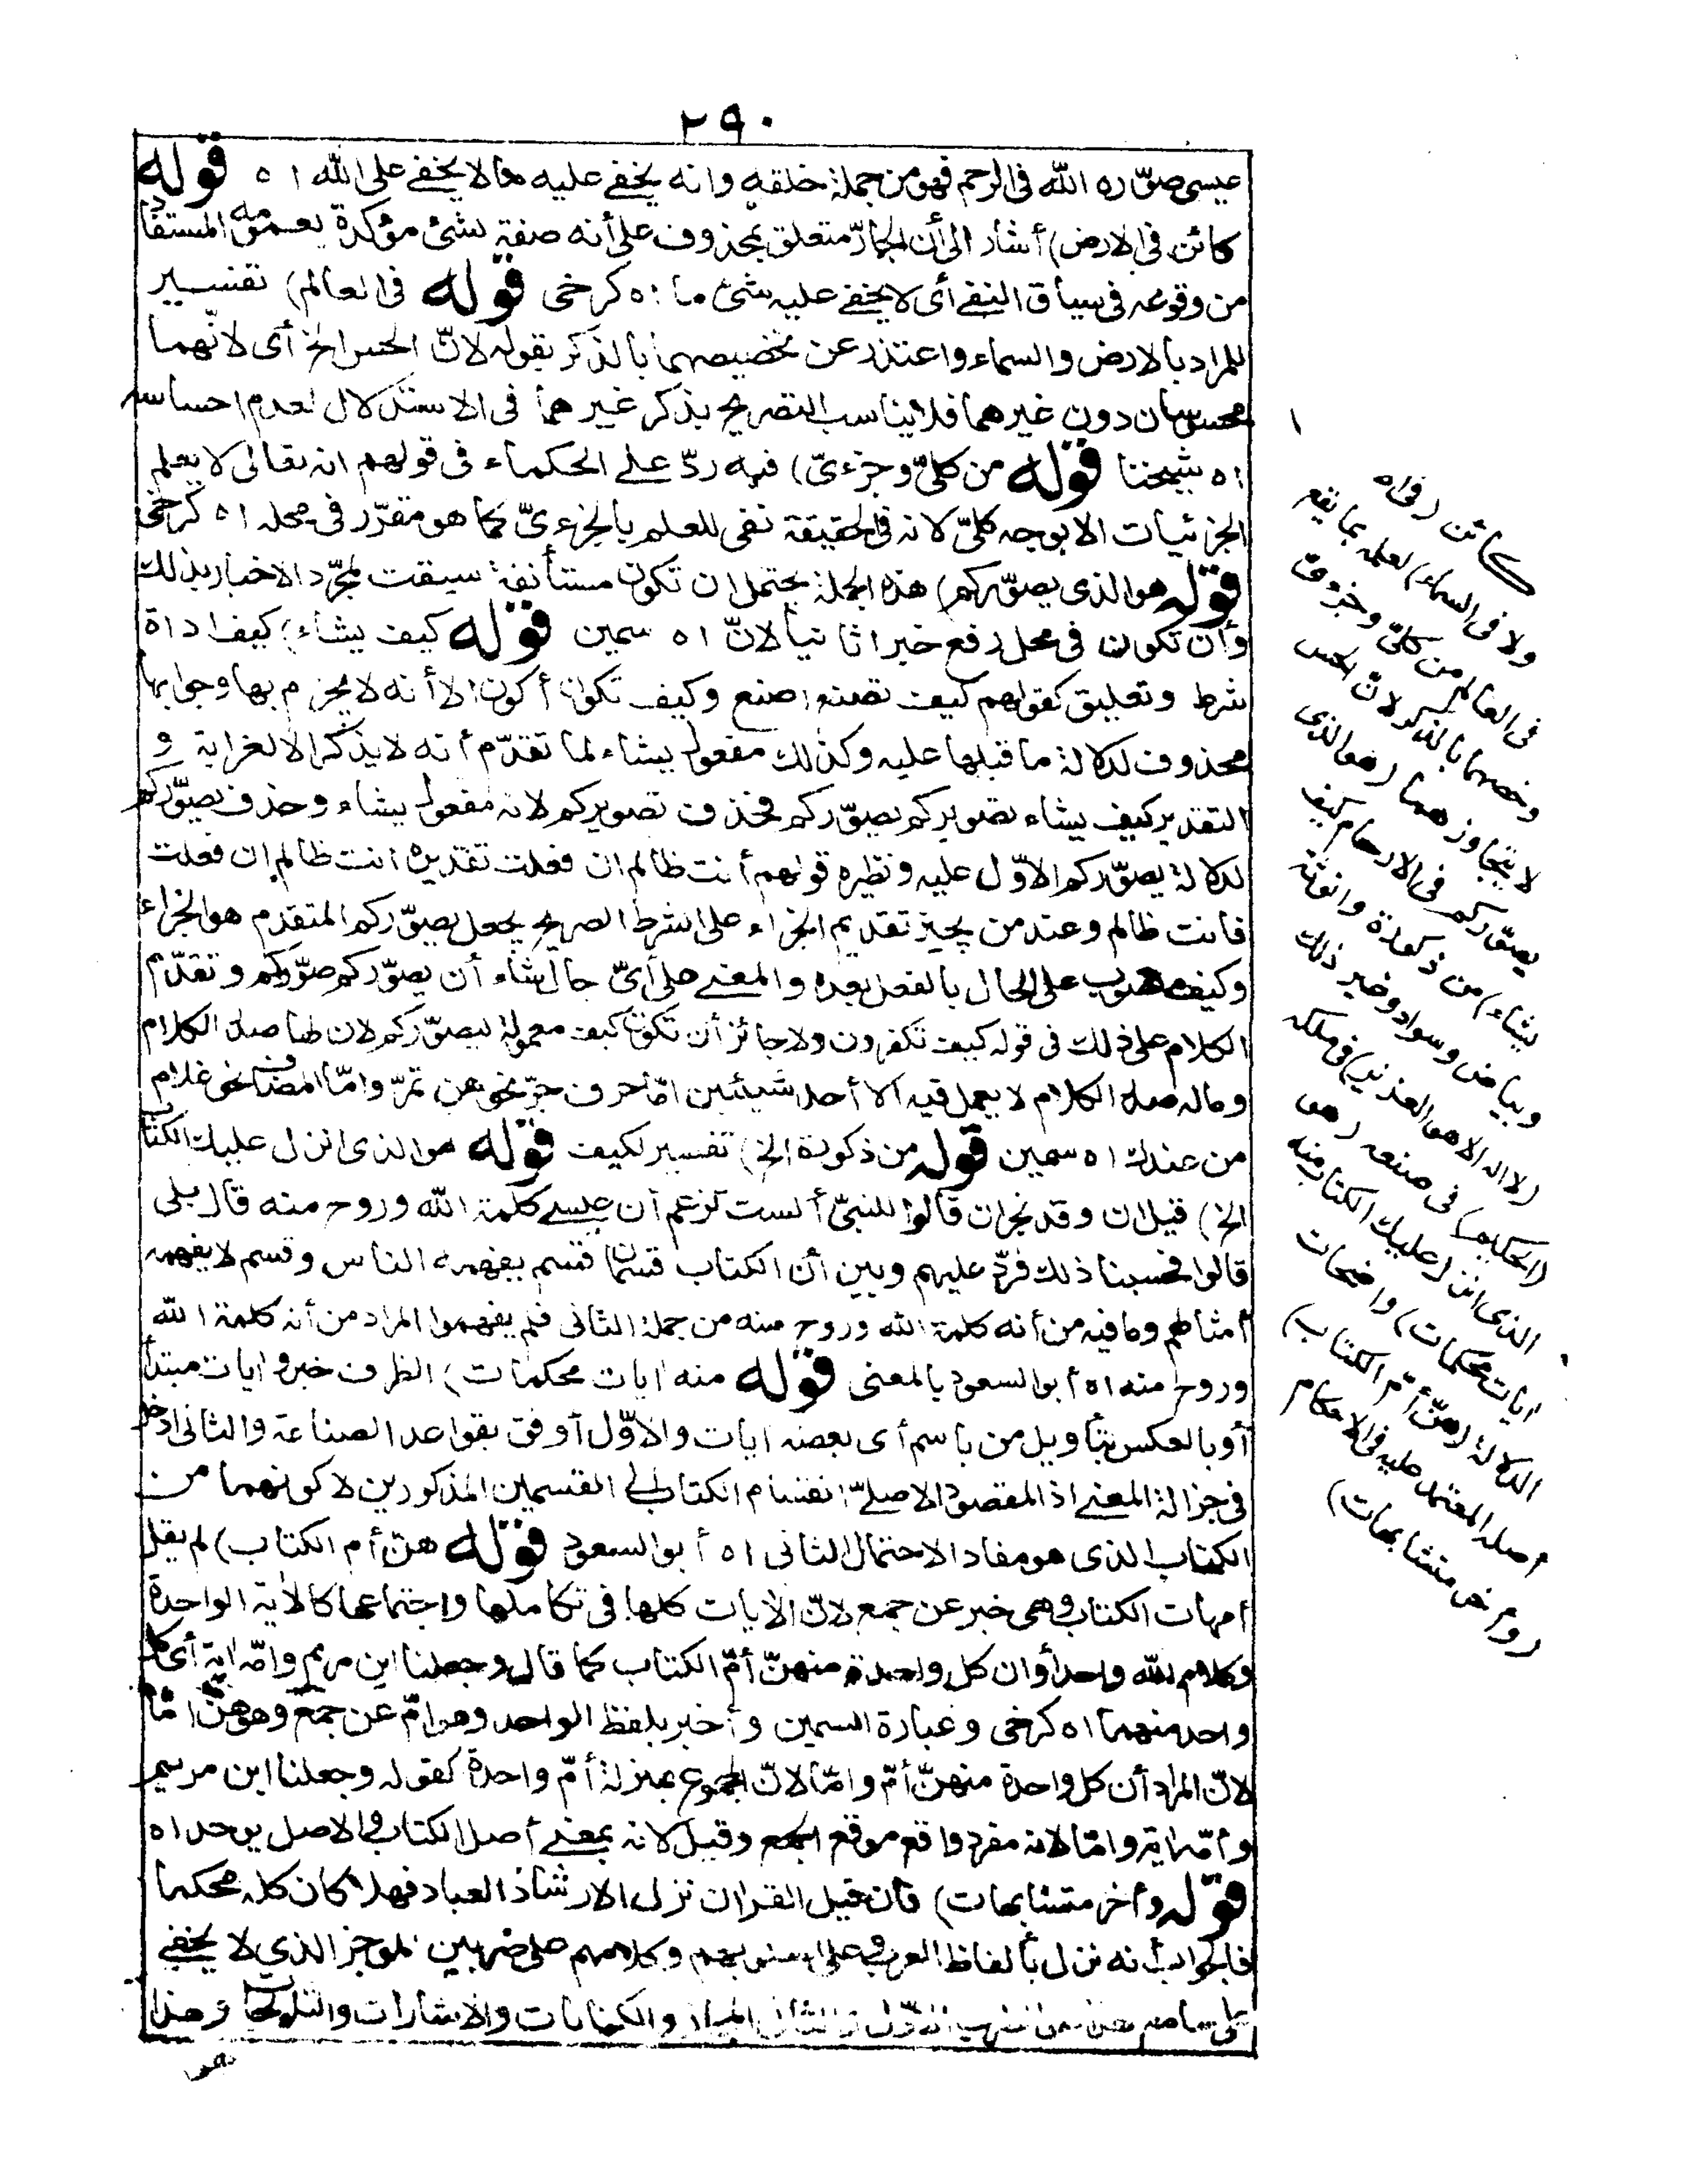 ٢٩٠
عيسى صوّره الله فى الرحم فهو من جملة خلقه وانه يخفى عليه ما لا يخفى على الله اه قوله
كائن فى الارض) أشار الى أن الجارّ متعلق بمحذوف على أنه صفة لشئ مؤكدة لعمومه المستفاد
من وقوعه فى سياق النفى أى لا يخفى عليه شئ ما اه كرخى قوله فى العالم) تفسير
للمراد بالارض والسماء واعتذر عن تخصيصهما بالذكر بقوله لانّ الحس الخ أى لانّهما
محسوسان دون غيرهما فلا يناسب التصريح بذكر غيرهما فى الاستدلال لعدم احساسه
اه شيخنا قوله من كلىّ وجزءىّ) فيه ردّ على الحكماء فى قولهم انه تعالى لا يعلم
الجزئيات الا بوجه كلىّ لانه فى الحقيقة نفى للعلم بالجزءىّ كما هو مقرّر فى محله اه كرخى
قوله هو الذى يصوّركم) هذه الجملة يحتمل ان تكون مستأنفة سيقت لمجرّد الاخبار بذلك
وأن تكون فى محل رفع خبرا ثانيا لانّ اه سمين قوله كيف يشاء) كيف اداة
شرط وتعليق كقولهم كيف تصنع اصنع وكيف تكون أكون الا أنه لا يجزم بها وجوابها
محذوف لدلالة ما قبلها عليه وكذلك مفعول يشاء لما تقدّم أنه لا يذكر الا لغرابة و
التقدير كيف يشاء تصويركم يصوّركم فحذف تصويركم لانه مفعول يشاء وحذف يصوّركم
لدلالة يصوّركم الاوّل عليه ونظيره قولهم أنت ظالم ان فعلت تقديره انت ظالم ان فعلت
فانت ظالم وعند من يجيز تقديم الجزاء على الشرط الصريح يجعل يصوّركم المتقدم هو الجزاء
وكيف منصوب على الحال بالفعل بعده والمعنى على أىّ حال شاء أن يصوّركم صوّركم وتقدّم
الكلام على ذلك فى قوله كيف تكفرون ولا جائز أن تكون كيف معمولة ليصوّركم لان لها صدر الكلام
وماله صدر الكلام لا يعمل فيه الا أحد شيئين امّا حرف جرّ نحو بمن تمرّ وامّا المضاف نحو غلام
من عندك اه سمين قوله من ذكورة الخ) تفسير لكيف قوله هو الذى انزل عليك الكتاب
الخ) قيل ان وفد نجران قالوا للنبىّ ألست تزعم أن عيسى كلمة الله وروح منه قال بلى
قالوا فحسبنا ذلك فردّ عليهم وبين أن الكتاب قسمان قسم يفهمه الناس وقسم لا يفهمه
أمثالهم وما فيه من أنه كلمة الله وروح منه من جملة الثانى فلم يفهموا المراد من أنه كلمة الله
وروح منه اه أبو السعود بالمعنى قوله منه ايات محكمات) الظرف خبر وايات مبتدأ
أو بالعكس بتأويل من باسم أى بعضه ايات والاوّل أوفق بقواعد الصناعة والثانى ادخل
فى جزالة المعنى اذ المقصود الاصلىّ انقسام الكتاب الى القسمين المذكورين لا كونهما من
الكتاب الذى هو مفاد الاحتمال الثانى اه أبو السعود قوله هنّ أم الكتاب) لم يقل
أمهات الكتاب وهى خبر عن جمع لانّ الايات كلها فى تكاملها واجتماعها كالاية الواحدة
وكلام الله واحد أو ان كل واحدة منهنّ أمّ الكتاب كما قال وجعلنا ابن مريم وامّه اية أى كل
واحد منهما اه كرخى وعبارة السمين وأخبر بلفظ الواحد وهو امّ عن جمع وهو هنّ امّا
لانّ المراد أن كل واحدة منهنّ أمّ وامّا لانّ المجموع بمنزلة أمّ واحدة كقوله وجعلنا ابن مريم
وأمّه اية وامّا لانه مفرد واقع موقع الجمع وقيل لانه بمعنى أصل الكتاب والاصل يوحد اه
قوله وأخر متشابهات) فان قيل القران نزل لارشاد العباد فهلا كان كله محكما
فالجواب أنه نزل بألفاظ العرب وعلى اسلوبهم وكلامهم على ضربين الموجز الذى لا يخفى
على سامع هذا هو الضرب الاوّل والثانى المجاز والكنايات والاشارات والتلويحات وهذا
هو
كائن (فى اه
ولا فى السماء) لعلمه بما يقع
فى العالم من كلىّ وجزوىّ
وخصهما بالذكر لانّ الحس
لا يتجاوزهما (هو الذى
يصوّركم فى الارحام كيف
يشاء) من ذكورة وانوثة
وبياض وسواد وغير ذلك
(لا اله الا هو العزيز) فى ملكه
(الحكيم) فى صنعه (هو
الذى انزل عليك الكتاب منه
ايات محكمات) واضحات
الدلالة (هنّ أمّ الكتاب)
اصله المعتمد عليه فى الاحكام
(وأخر متشابهات)